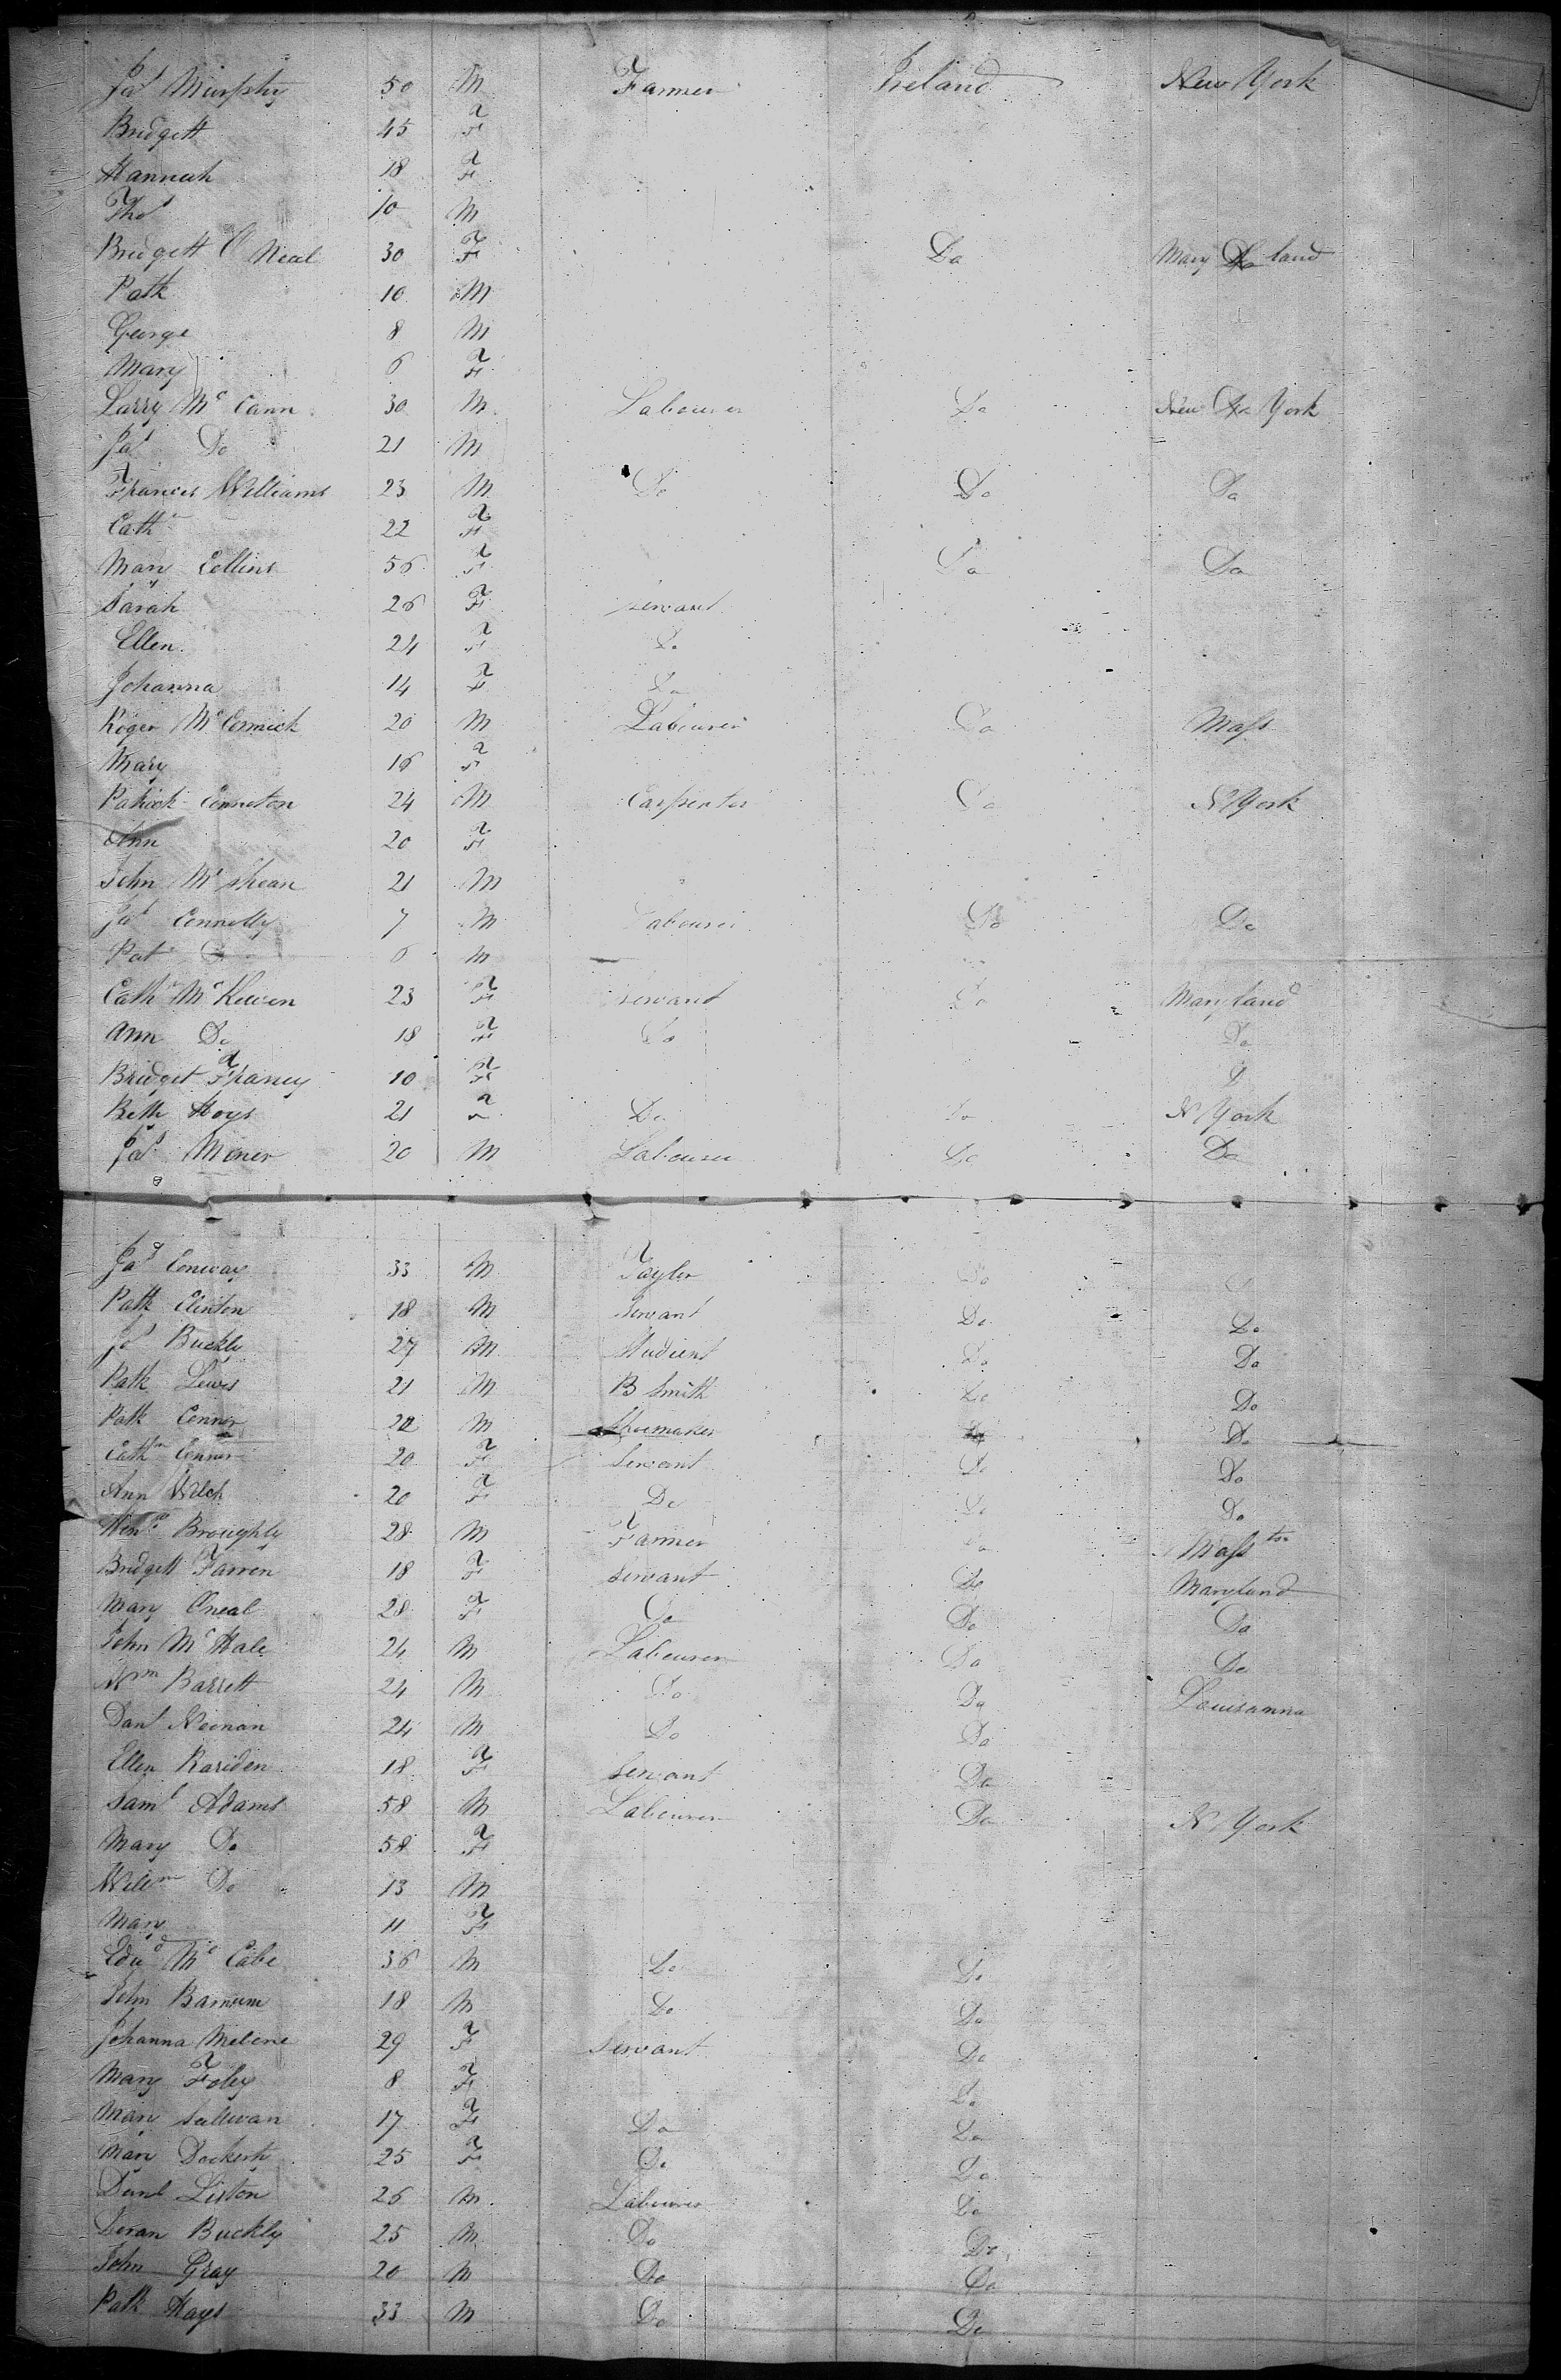 Jas Murphy 50 M Farmer Ireland New York
Bridgett 45 F
Hannah 18 F
Thos 10 M
Bridgett O Neal 30 F Do Mary Do land
Patk 10 M
George 8 M
Mary 6 F
Larry Mc Cann 30 M Labourer Do New Do York
Jas Do 21 M
Frances Williams 23 M Do Do Do
Cathe 22 F
Mary Collins 56 F Do Do
Sarah 26 F servant
Ellen 24 F Do
Johanna 14 F Do
Roger Mc Cormick 20 M Labourer Do Mass
Mary 16 F
Patrick Conneton 24 M Carpenter Do N York
Ann 20 F
John Mc Shean 21 M
Jas Connolly 7 M Labourer Do Do
Pat Do 6 M
Cathe Mc Kewen 23 F servant Do Maryland
Ann Do 18 F Do Do
Bridget Franey 10 F
Bette Hoys 21 F Do Do N York
Jas Moner 20 M Labourer Do Do
Jas Conway 33 M Taylor Do
Patk Clinton 18 M Servant Do Do
Jo Buckly 27 M Student Do Do
Patk Lewis 21 M B Smith Do Do
Patk Connor M Shoemaker Do Do
Cathn Connor 20 F Servant Do Do
Ann Welch 20 F Do Do Do
Broughly 28 M Farmer Do Masstts
Bridgett Farren 18 F Servant Do Maryland
Mary Oneal 28 F Do Do Do
John Mc Hale 24 M Labourer Do Do
Wm Barrett 24 M Do Do Louisanna
Danl Neonan 24 M Do Do
Ellen Rariden 18 F Servant Do
Saml Adams 58 M Labourer Do N York
Mary Do 58 F
Willm Do 13 M
Mary 11 F
Edwd Mc Cabe 36 M Do Do
John Barnum 18 M Do Do
Johanna Melone 29 F Servant Do
Mary Foley 8 F Do
Mary Sullivan 17 F Do Do
Mary Dockerty 25 F Do Do
Danl Liston 26 M Labourer Do
Buckly 25 M Do Do
John Gray 20 M Do Do
Patk Hays 33 M Do Do